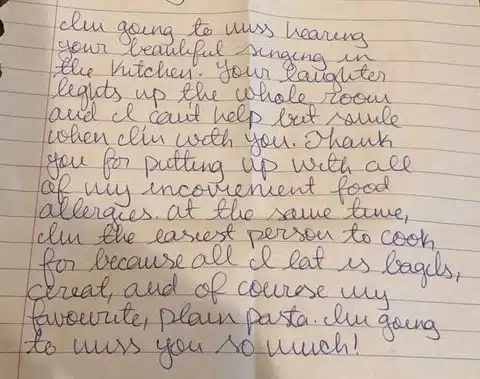 I'm going to miss hearing
your beautiful singing in
the kitchen. Your laughter
lights up the whole room
and I can't help but smile
when I'm with you. Thank
you for putting up with all
of my incovienient food
allergies. at the same time,
I'm the easiest person to cook
for because all I eat is bagels,
cereal, and of course my
favourite, plain pasta. I'm going
to miss you so much!